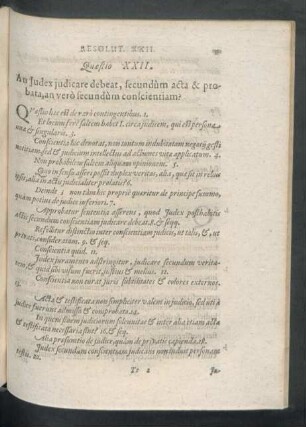 RESOLUT. XXII.
Quæstio XXII.
An Judex judicare debeat, secundùm acta & pro-
bata, an verò secundùm conscientiam?
Quæstio hæc est de raro contingentibus. 1.
Et locum ferè saltem habet 1. circa judicem, qui est persona
na & singularis. 3.
Conscientia hic denotat, non tantum indubitatam negotij gesti
notitiam, sed & judicium intellectus ad actiones vita applicatum. 4.
Non prohibitum saltem aliquam opinionem. 5.
Quæ in sensu asseri possit duplex veritas, alia, quæ sit in rebus
ipsis, alia in actis judicialiter probatis? 6.
Deinde non tàm hoc proprie quæritur de principe summo,
quàm potius de judice inferiori. 7.
Approbatur sententia asserens, quod Judex posthabitis
actis secundum conscientiam judicare debeat. 8. & seqq.
Refellitur distinctio inter conscientiam judicis, ut talis, & ut
privati consideratam. 9. & seq.
Conscientia quid. 11.
Judex juramento adstringitur, judicare secundum verita-
tem & quod sibi visum fuerit, justius & melius. 12.
Conscientia non curat juris subtilitates & colores externos.
13.
Acta & testificata non simpliciter valent in judiciis, sed uti à
judice fuerint admissa & comprobata. 14.
In quem finem judiciorum solennitates & inter alia etiam acta
& testificata necessaria sint? 16. & seq.
Alia præsumtio de judice, quàm de privato capienda. 18.
Judex secundum conscientiam judicans non induit personam
testis. 21.
Tt 2
Ju-